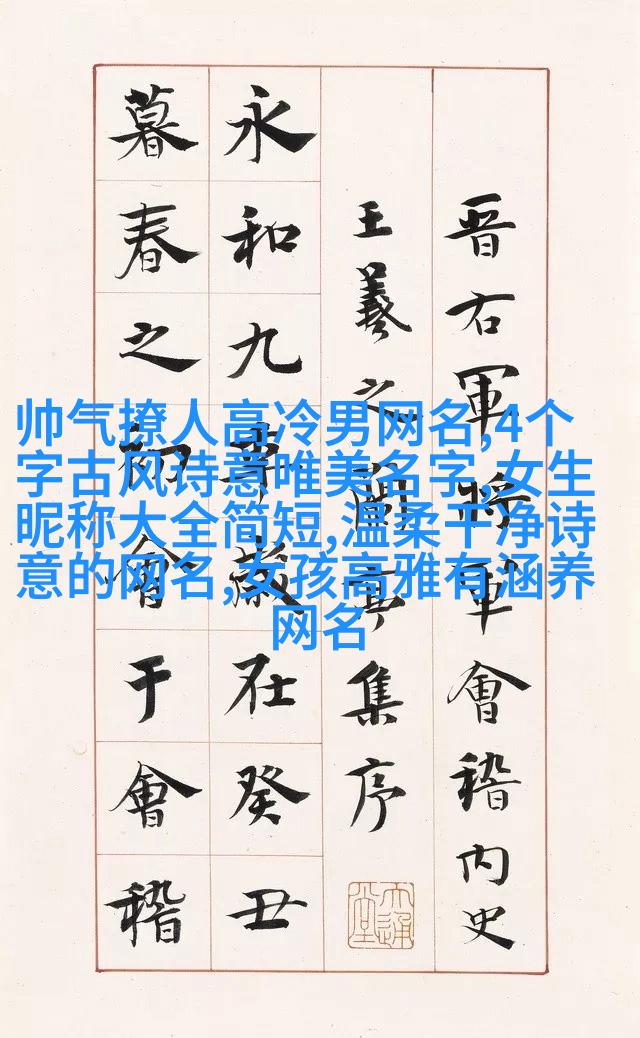 晋右軍將軍會稽内史
王羲之蘭亭集序
永和九年歲在癸丑
暮春之初會于會稽
帅气撩人高冷男网名,4个
字古风诗意唯美名字,女生
昵称大全简短,温柔干净诗
意的网名,女孩高雅有涵养
网名